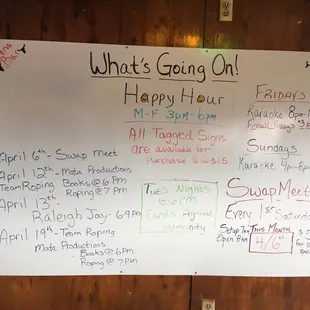 What's Going On!
Happy Hour
M-F 3pm-6pm
All Tagged Signs
are available for
Purchase
April 6th - Swap Meet
April 12th - Mata Productions
Team Roping Books @ 6pm
Roping @ 7pm
April 13th -
Raleigh Jay - 6-9pm
April 19th - Team Roping
Mata Productions
- Books @ 6pm
Roping @ 7pm
Tues Nights
@ 6pm
Cards Against
Humanity
Fridays
Karaoke 8pm-
Sundays
Karaoke 4p-8p
Swap Meet
Every 1st Saturda
Setup 7am
Open 8am
This Month
4/6